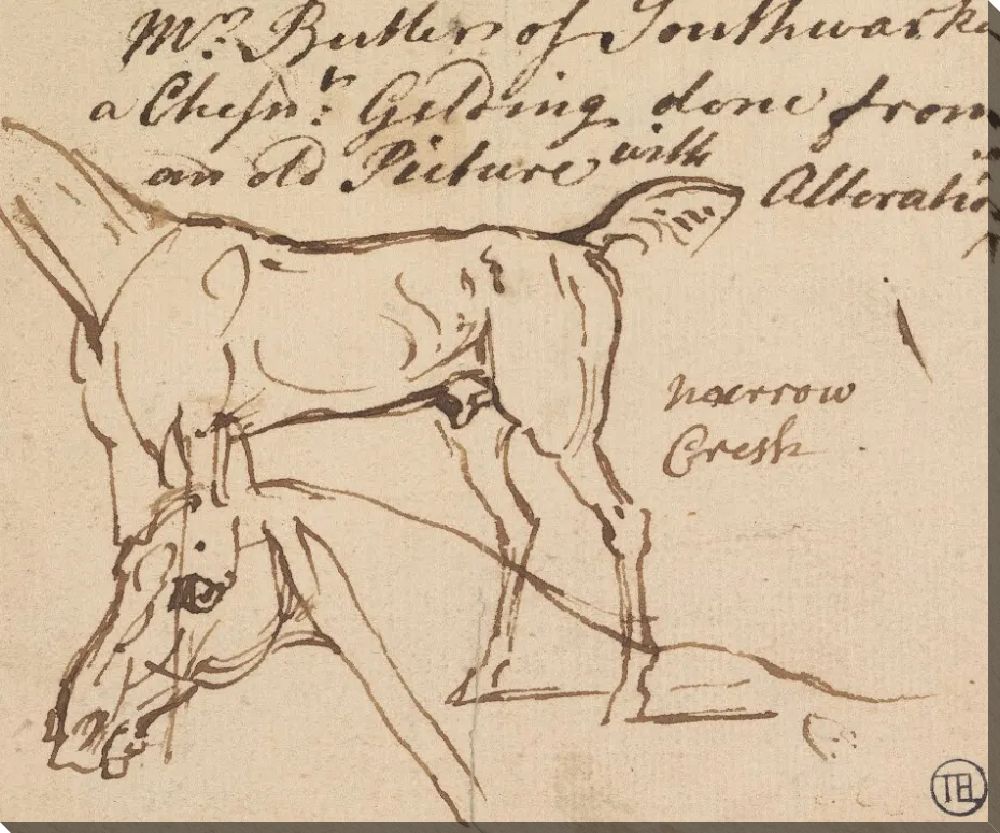 Mr. Butler of Southwark
a Chesnt: Gelding done from
an old Picture with
Alteratio
narrow
Cresk
TEL